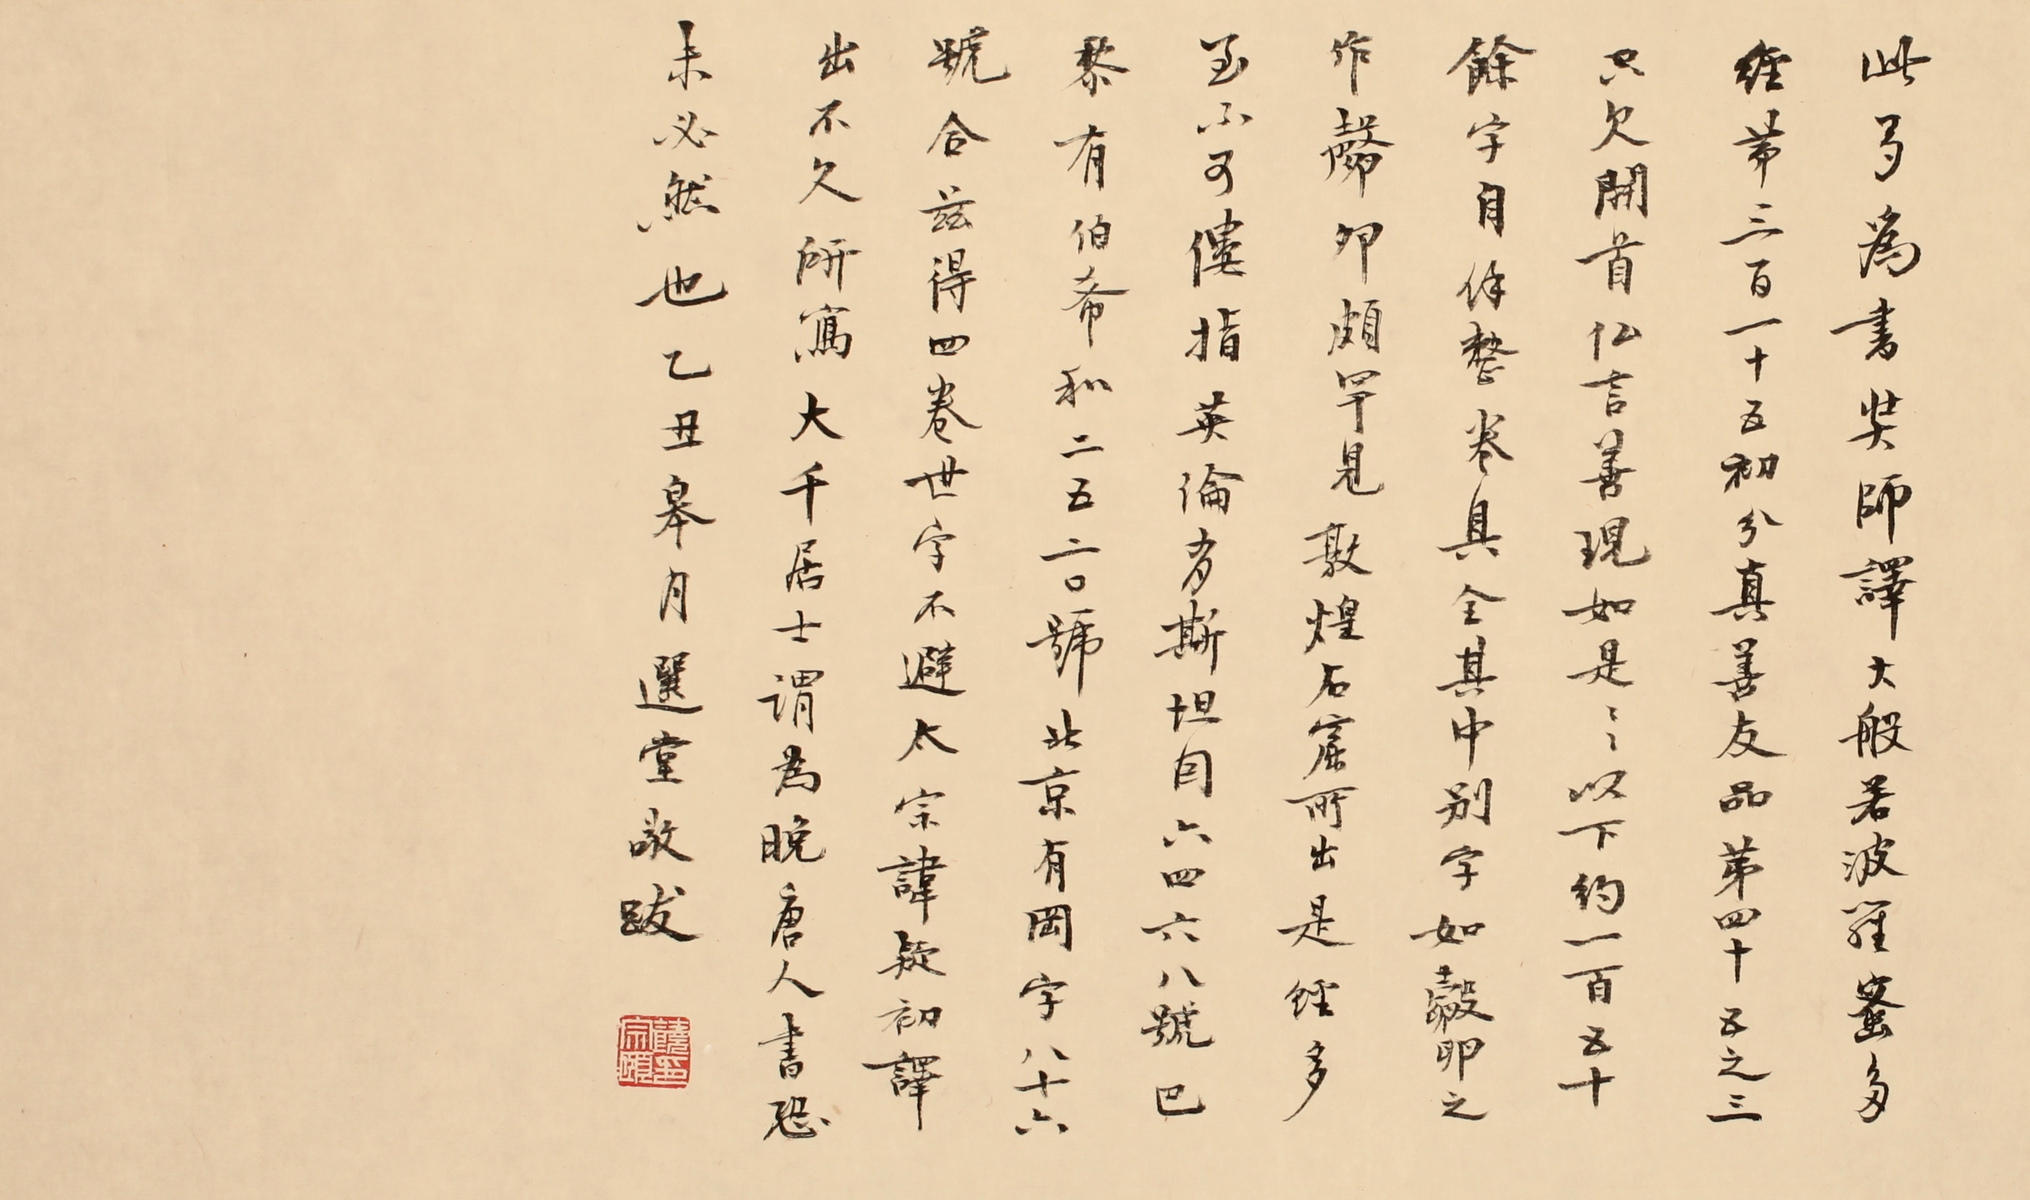 此身為書奘師譯大般若波羅蜜多
經苐三百一十五初分真善友品苐四十五之三
只欠開首仏言善現如是〻以下約一百五十
餘字自餘整卷具全其中別字如㲉卵之
作卵頗罕見敦煌石窟所出是經多
至不可僂指英倫有斯坦因六四六八號巴
黎有伯希和二五六〇號北京有岡字八十六
號合茲得四卷世字不避太宗諱疑初譯
出不久所寫大千居士謂為晚唐人書恐
未必然也乙丑皋月選堂敬跋
饒宗頤印